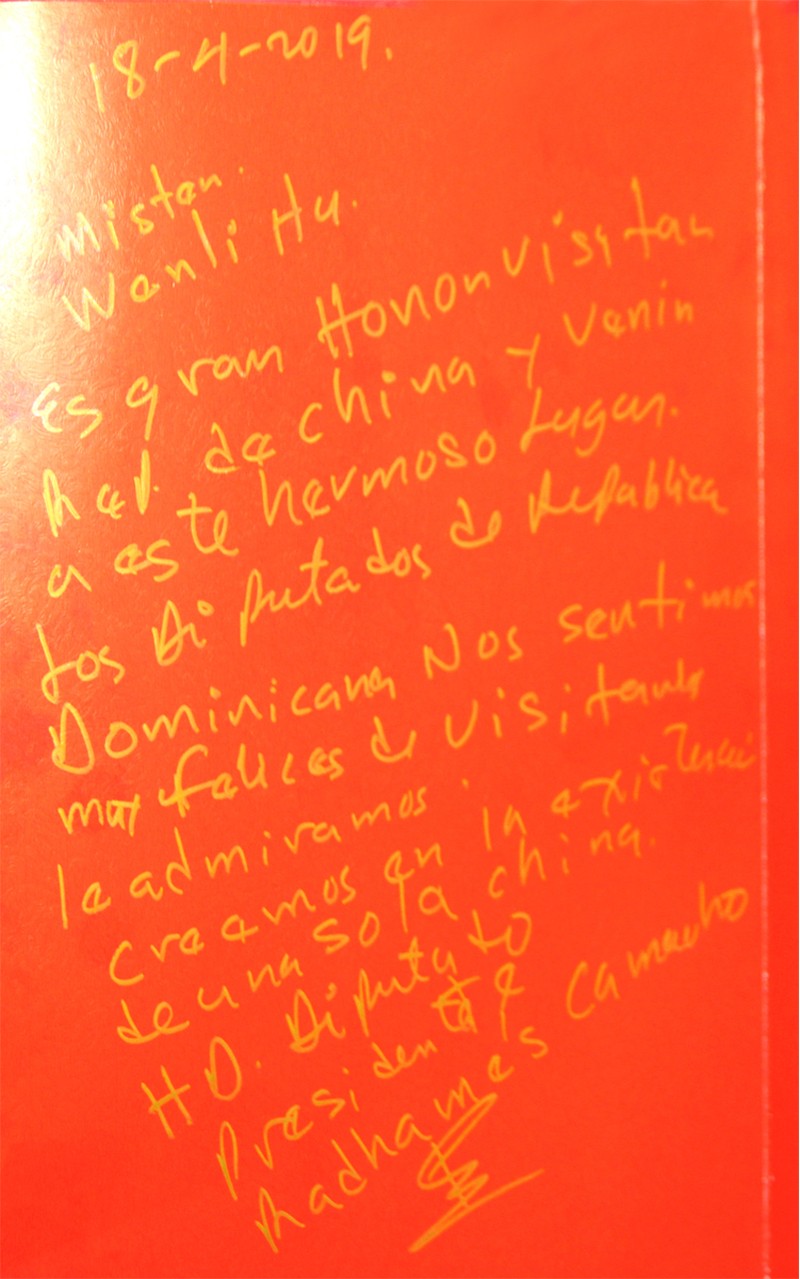 18-4-2019.
Mister.
Wenli Hu.
Es gran Honor visitar
Rep. de china y venir
a este hermoso Lugar.
Los Diputados de Republica
Dominicana Nos sentimos
muy felices de visitarle
le admiramos.
Creemos en la existencia
de una sola china.
HD. Diputado
Presidente
Radhames Camacho